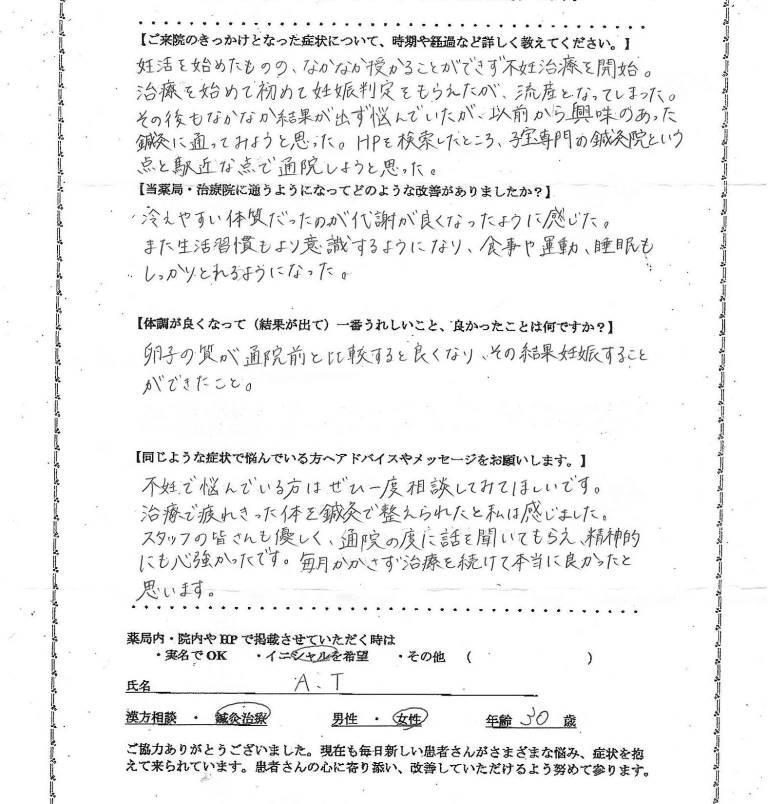 【ご来院のきっかけとなった症状について、時期や経過など詳しく教えてください。】
妊活を始めたものの、なかなか授かることができず不妊治療を開始。
治療を始めて初めて妊娠判定をもらえたが、流産となってしまった。
その後もなかなか結果が出ず悩んでいたが、以前から興味のあった
鍼灸に通ってみようと思った。HPを検索したところ、子宝専門の鍼灸院という
点と駅近な点で通院しようと思った。
【当薬局・治療院に通うようになってどのような改善がありましたか？】
冷えやすい体質だったのが代謝が良くなったように感じた。
また生活習慣もより意識するようになり、食事や運動、睡眠も
しっかりとれるようになった。
【体調が良くなって（結果が出て）一番うれしいこと、良かったことは何ですか？】
卵子の質が通院前と比較すると良くなり、その結果妊娠すること
ができたこと。
【同じような症状で悩んでいる方へアドバイスやメッセージをお願いします。】
不妊で悩んでいる方はぜひ一度相談してみてほしいです。
治療で疲れきった体を鍼灸で整えられたと私は感じました。
スタッフの皆さんも優しく、通院の度に話を聞いてもらえ、精神的
にも心強かったです。毎月かかさず治療を続けて本当に良かったと
思います。
薬局内・院内やHPで掲載させていただく時は
・実名でOK ・イニシャルを希望 ・その他 （ ）
氏名 A.T
漢方相談 ・ 鍼灸治療 男性 ・ 女性 年齢 30 歳
ご協力ありがとうございました。現在も毎日新しい患者さんがさまざまな悩み、症状を抱
えて来られています。患者さんの心に寄り添い、改善していただけるよう努めて参ります。